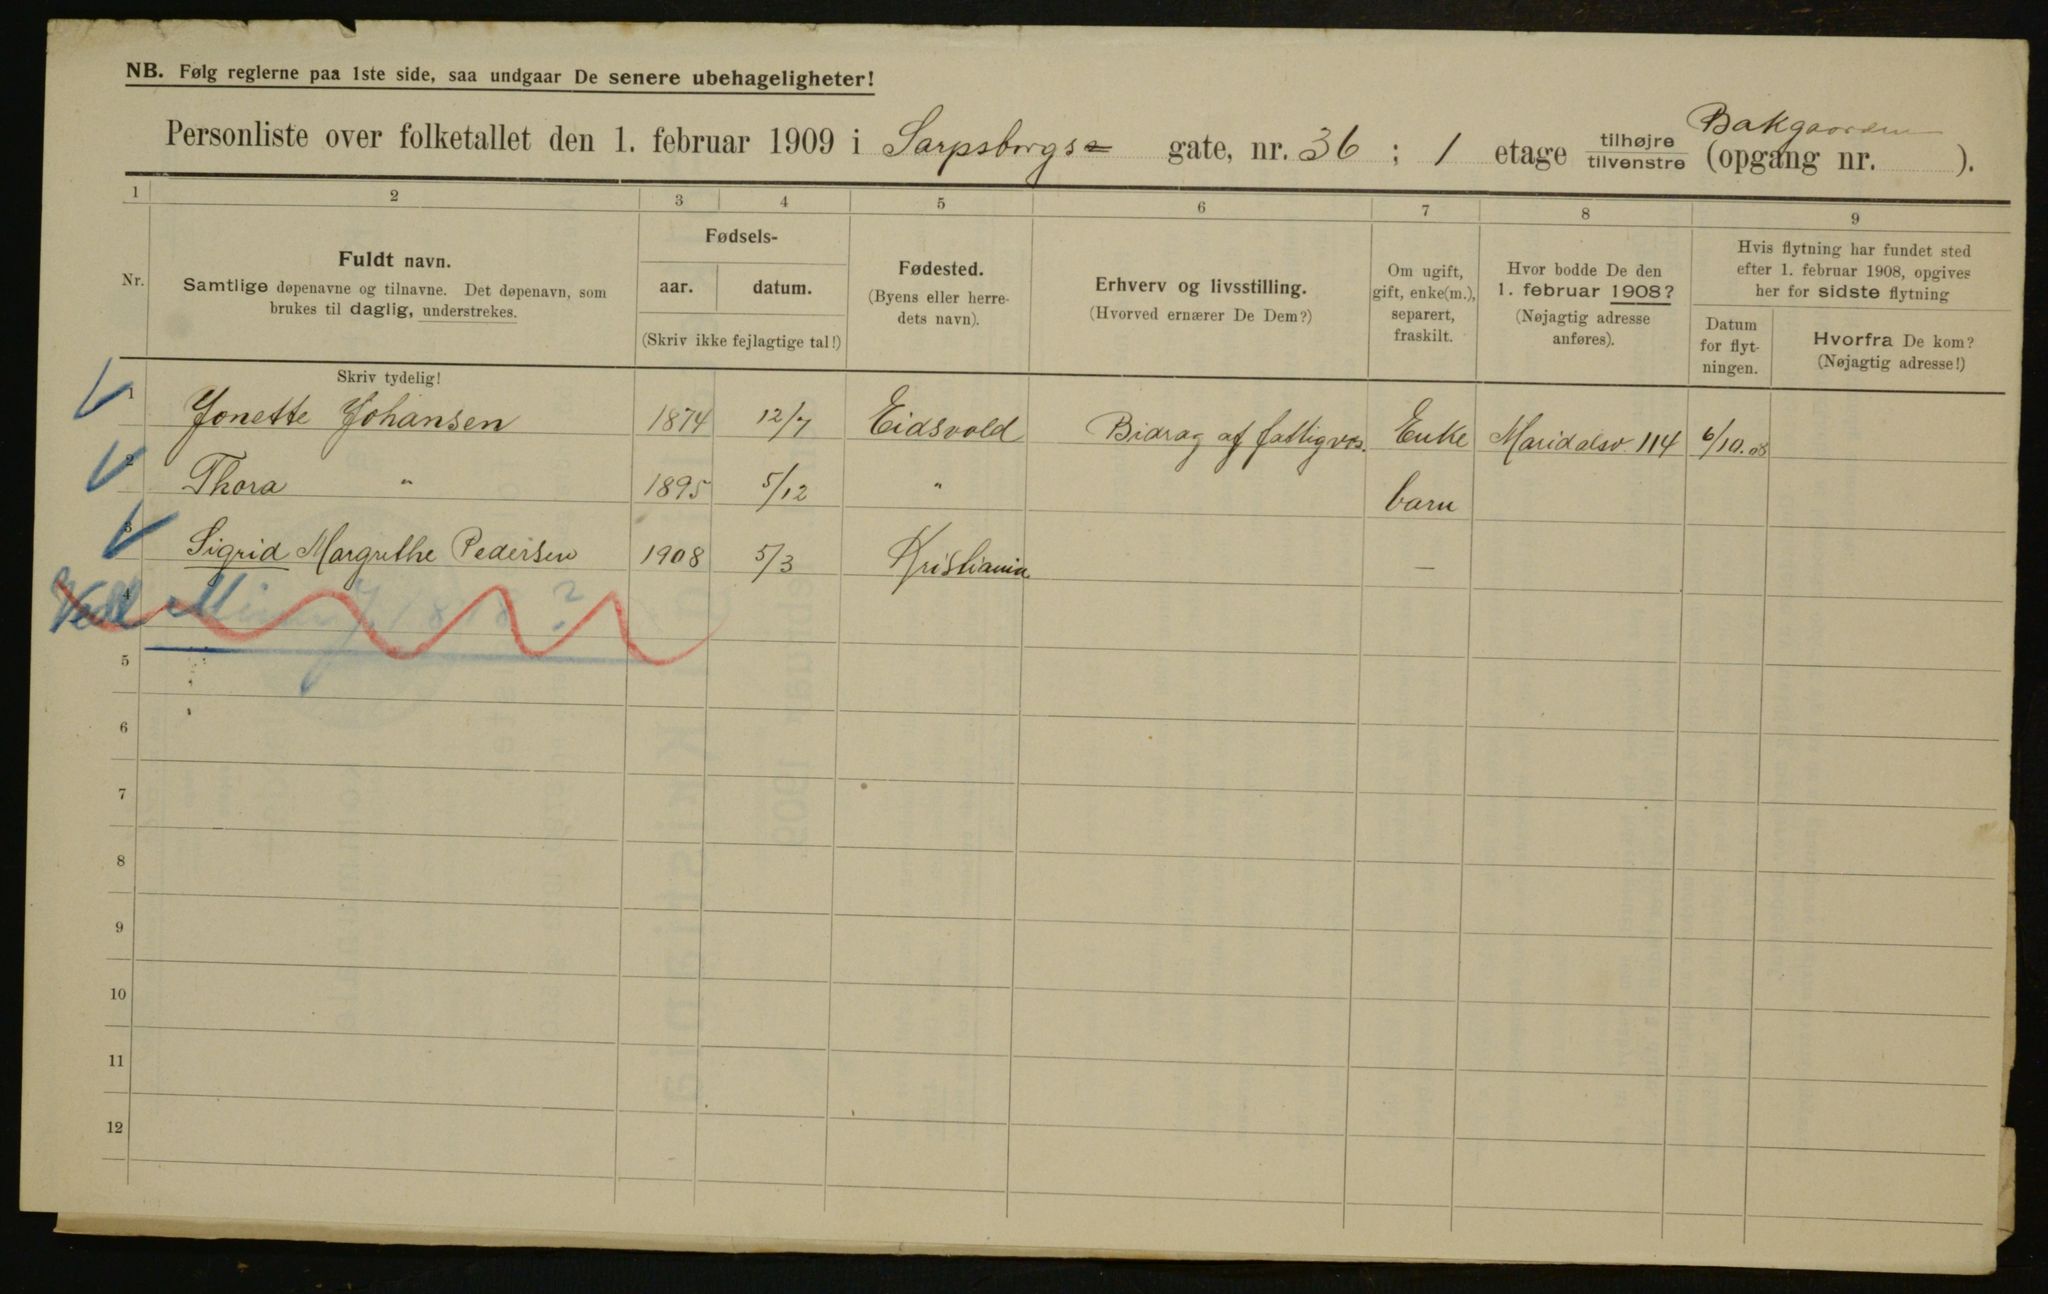 NB. Følg reglerne paa 1ste side, saa undgaar De senere ubehageligheter!
Bakgaarden
Personliste over folketallet den 1. februar 1909 i Sarpsborgs gate, nr. 36 ; 1 etage tilhøjre tilvenstre (opgang nr. ).
1 2 3 4 5 6 7 8 9
Nr.
Fuldt navn.
Samtlige døpenavne og tilnavne. Det døpenavn, som
brukes til daglig, understrekes.
Fødsels-
aar. datum.
(Skriv ikke fejlagtige tal!)
Fødested.
(Byens eller herre-
dets navn).
Erhverv og livsstilling.
(Hvorved ernærer De Dem?)
Om ugift,
gift, enke(m.),
separert,
fraskilt.
Hvor bodde De den
1. februar 1908?
(Nøjagtig adresse
anføres).
Hvis flytning har fundet sted
efter 1. februar 1908, opgives
her for sidste flytning
Datum
for flyt-
ningen.
Hvorfra De kom?
(Nøjagtig adresse!)
Skriv tydelig!
1 Jonette Johansen 1874 12/7 Eidsvold Bidrag af fattigvæs. Enke Maridalsv. 114 6/10.08
2 Thora " 1895 5/12 " barn
3 Sigrid Margrethe Pedersen 1908 5/3 Kristiania —
4
5
6
7
8
9
10
11
12